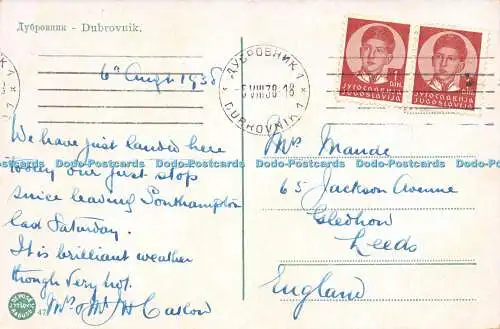 Дубровник - Dubrovnik.
6th Augt 1938
ДУБРОВНИК 1
VIII 38 - 18
DUBROVNIK 1
1 DIN.
ЈУГОСЛАВИЈА
JUGOSLAVIJA
ЈУГОСЛАВИЈА
JUGOSLAVIJA
We have just landed here
today our first stop
since leaving Southampton
last Saturday.
It is brilliant weather
though very hot.
Mrs & Mr H Caslow
Mrs Maude
65 Jackson Avenue
Gledhow
Leeds
England
Dodo-Postcards Dodo-Postcards Dodo-Postcards Dodo-Postcards Dodo-Postcards
47